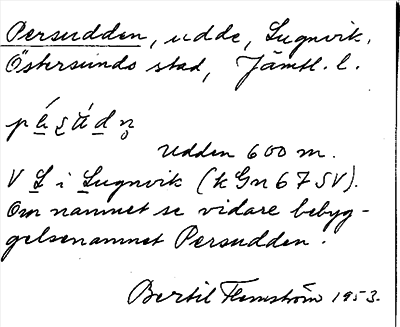 Persudden, udde, Lugnvik,
Östersunds stad, Jämtl. l.
Udden 600 m.
V L i Lugnvik (kGn 67 SV).
Om namnet se vidare bebyg-
gelsenamnet Persudden.
Bertil Flemström 1953.